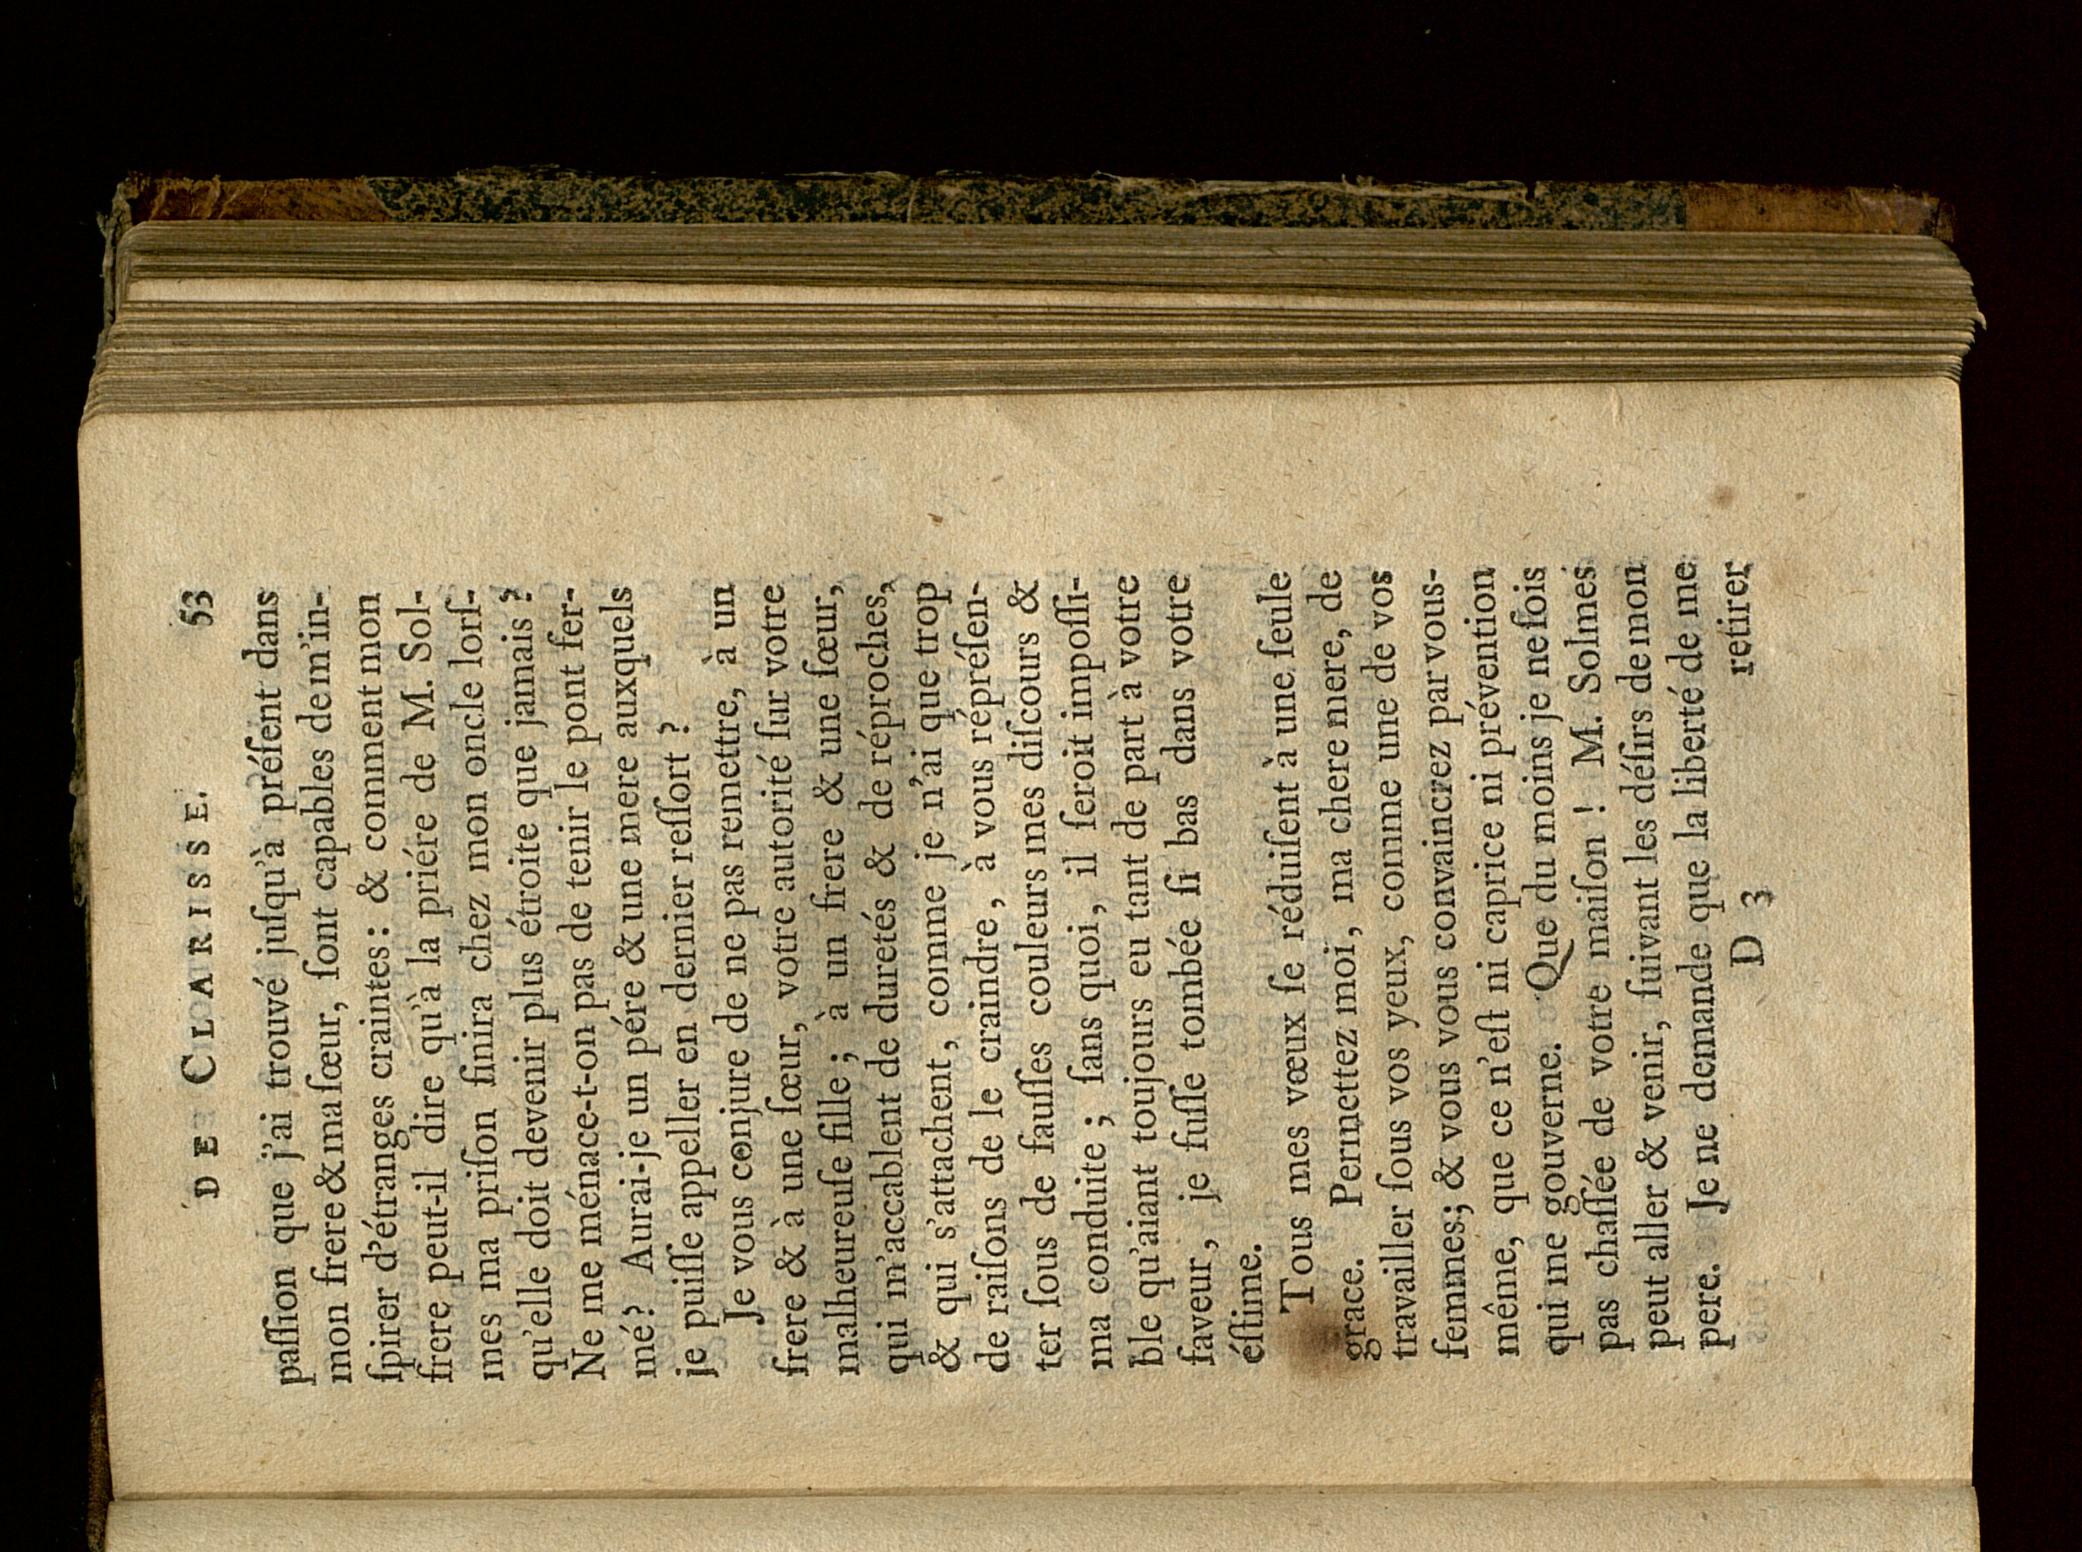 DE CLARISSE. 53
paſſion que j'ai trouvé juſqu'à préſent dans
mon frere & ma ſœur, ſont capables de m'in-
ſpirer d'étranges craintes: & comment mon
frere peut-il dire qu'à la priére de M. Sol-
mes ma priſon finira chez mon oncle lorſ-
qu'elle doit devenir plus étroite que jamais?
Ne me ménace-t-on pas de tenir le pont fer-
mé? Aurai-je un pére & une mere auxquels
je puiſſe appeller en dernier reſſort?
Je vous conjure de ne pas remettre, à un
frere & à une ſœur, votre autorité ſur votre
malheureuſe fille; à un frere & une ſœur,
qui m'accablent de duretés & de réproches,
& qui s'attachent, comme je n'ai que trop
de raiſons de le craindre, à vous répréſen-
ter ſous de fauſſes couleurs mes diſcours &
ma conduite; ſans quoi, il ſeroit impoſſi-
ble qu'aiant toujours eu tant de part à votre
faveur, je fuſſe tombée ſi bas dans votre
éſtime.
Tous mes vœux ſe réduiſent à une ſeule
grace. Permettez moi, ma chere mere, de
travailler ſous vos yeux, comme une de vos
femmes; & vous vous convaincrez par vous-
même, que ce n'eſt ni caprice ni prévention
qui me gouverne. Que du moins je ne ſois
pas chaſſée de votre maiſon! M. Solmes
peut aller & venir, ſuivant les déſirs de mon
pere. Je ne demande que la liberté de me
D 3 retirer